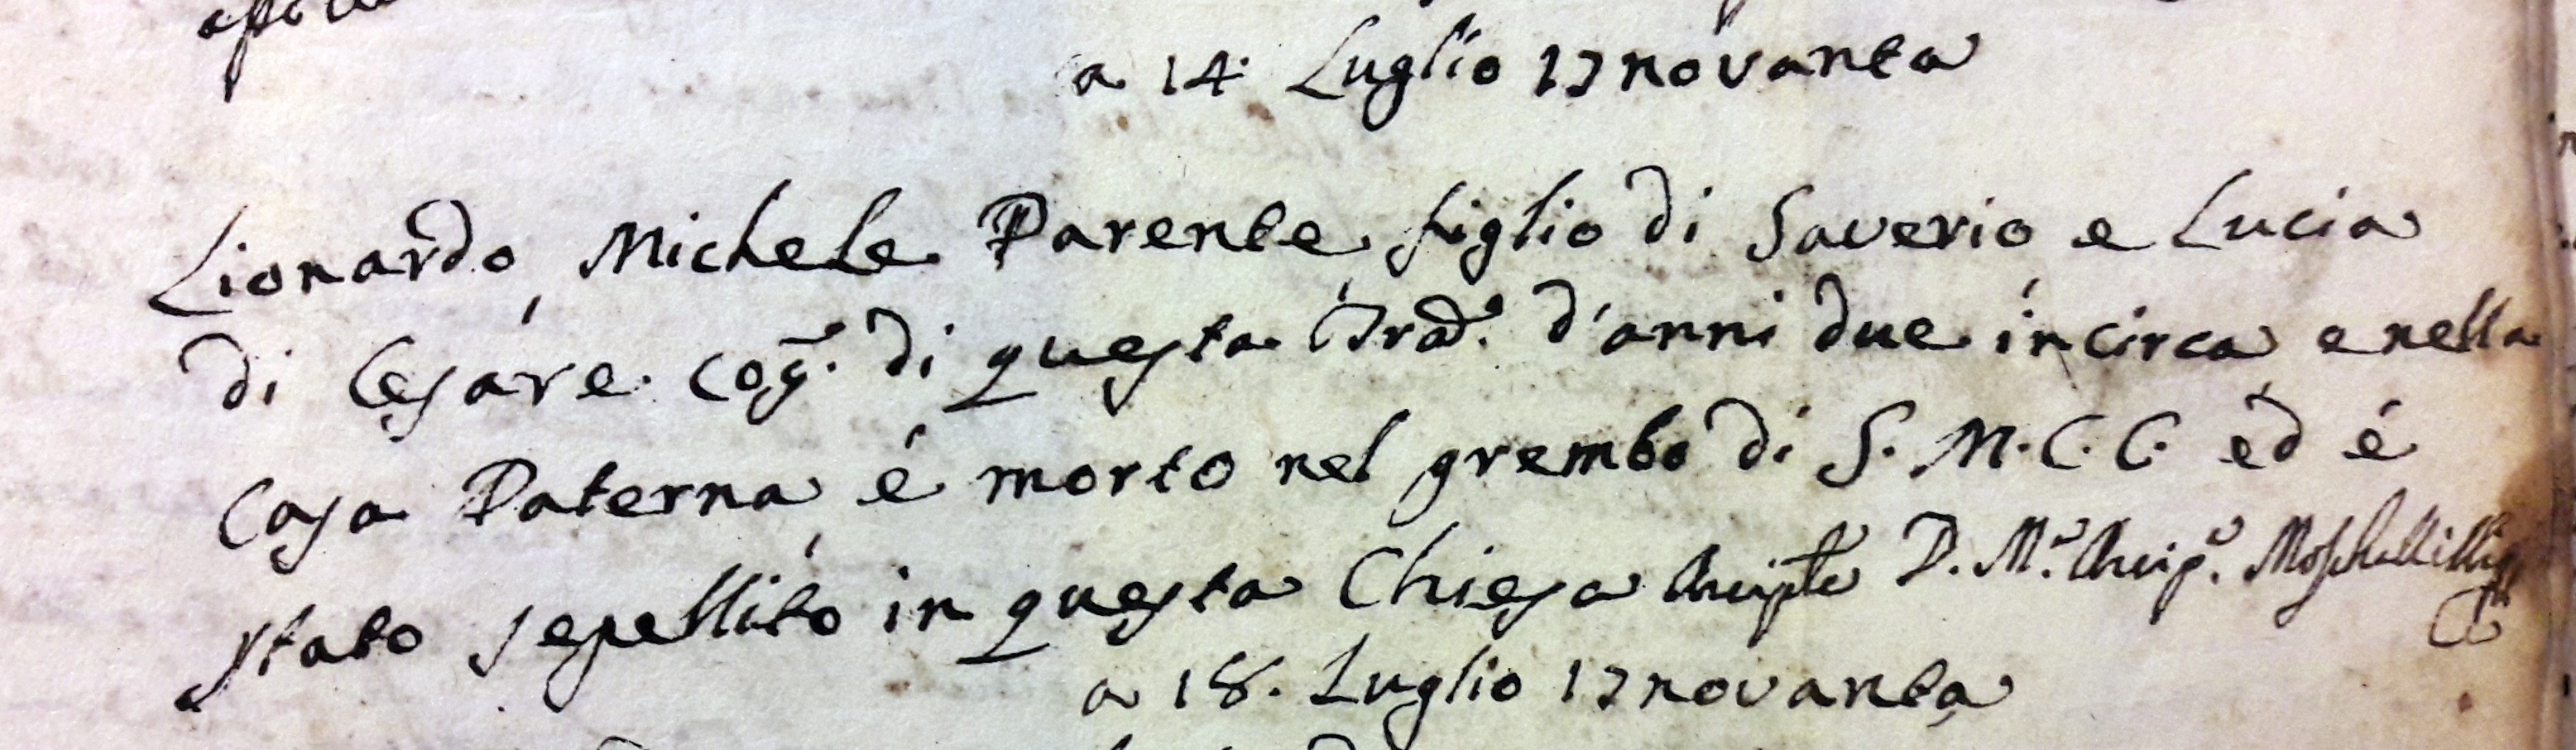 a 14. Luglio 17novanta
Lionardo, Michele Parente figlio di Saverio e Lucia
di Cesare cog. di questa Trad. d'anni due incirca e nella
Casa Paterna é morto nel grembo di S. M. C. C. ed é
stato sepellito in questa Chiesa D. M.
a 18. Luglio 17novanta